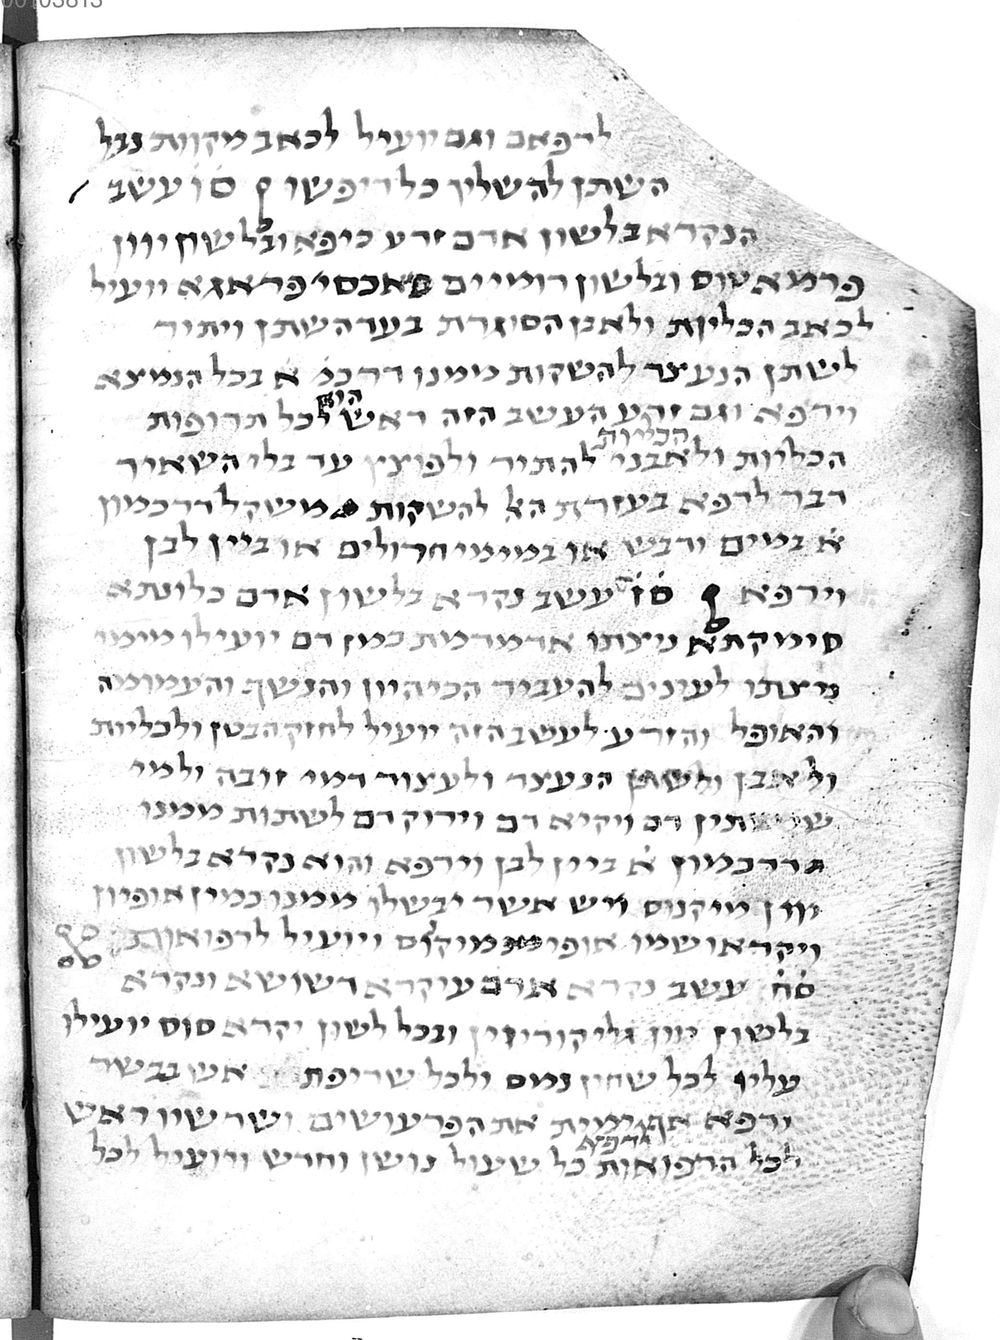 לרפאם וגם יועיל לכאב מקוות גבל
השתן להשליך כל ריפשו ס̇ו̇ עשב
הנקרא בלשון ארם זרע כיפא ובלשון יוון
פרמאטוס ובלשון רומיים סאכסי פראגא יועיל
לכאב הכליות ולאבן הסוגרת בעד השתן ויתיר
לשתן הנעצר להשקות ממנו דרכמ̇ א̇ בכל הנמצא
וירפא וגם זרע העשב הזה ראש היא לכל תרופות
הכליות ולאבני הכליות להתיר ולפוצץ עד בלי השאיר
דבר לרפא בעזרת האל להשקות ממשקל דרכמון
א̇ במים ודבש או במימי חרולים או ביין לבן
וירפא ס̇ז̇ עשב נקרא בלשון ארם כלונתא
סימקתא ניצתו אדמדמת כמו דם יועילו מימי
ניצתו לעינים להעביר הכיהיון והנשף והעמומה
והאופל והזרע לעשב הזה יועיל לחזק הבטן ולכליות
ולאבן ולשתן הנעצר ולעצור דמי זובה ולמי
שישתין דם ויקיא דם וירוק דם לשתות ממנו
דרכמון א̇ ביין לבן וירפא והוא נקרא בלשון
יוון מיקנוס ויש אשר יבשלו ממנו כמין אופיון
ויקראו שמו אופיון מיקוס ויועיל לרפואות
ס̇ח̇ עשב נקרא ארם עיקרא דשושא ונקרא
בלשון יוון גליקוריזין ובכל לשון יקרא סוס יועילו
עליו לכל שחין נמס ולכל שריפת אש בבשר
ורפא אף ימית את הפרעושים ושרשיו ראש
לכל הרפואות ורפא כל שעול נושן וחדש ויועיל לכל